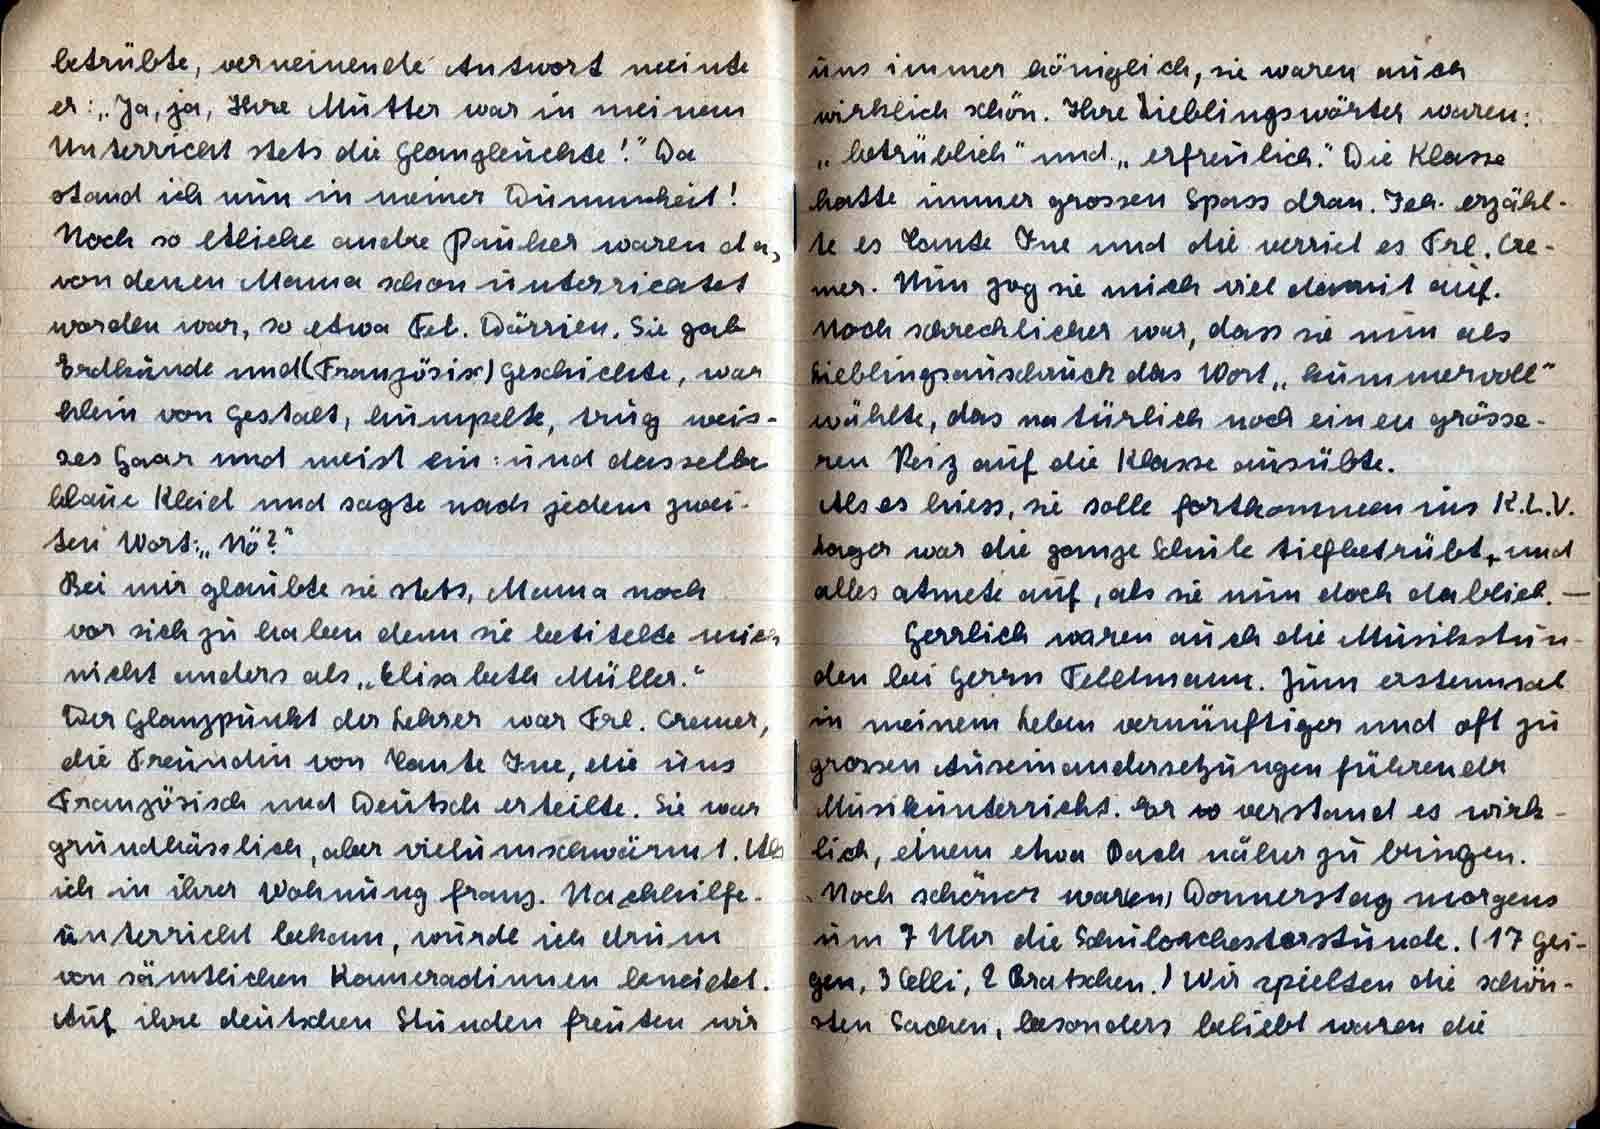 betrübte, verneinende Antwort meinte
er: „Ja, ja, Ihre Mutter war in meinem
Unterricht stets die Glanzleuchte!" Da
stand ich nun in meiner Dummheit!
Noch so etliche andre Pauker waren da,
von denen Mama schon unterrichtet
worden war, so etwa Frl. Dürrien. Sie gab
Erdkunde und (Französix) Geschichte, war
klein von Gestalt, humpelte, trug weis-
ses Haar und meist ein- und dasselbe
blaue Kleid und sagte nach jedem zwei-
ten Wort: „Nö?"
Bei mir glaubte sie stets, Mama noch
vor sich zu haben denn sie betitelte mich
nicht anders als „Elisabeth Müller."
Der Glanzpunkt der Lehrer war Frl. Cremer,
die Freundin von Tante Ine, die uns
Französisch und Deutsch erteilte. Sie war
grundhässlich, aber vielumschwärmt. Als
ich in ihrer Wohnung franz. Nachhilfe-
unterricht bekam, wurde ich drum
von sämtlichen Kameradinnen beneidet.
Auf ihre deutschen Stunden freuten wir
uns immer königlich, sie waren auch
wirklich schön. Ihre Lieblingswörter waren:
„betrüblich" und „erfreulich." Die Klasse
hatte immer grossen Spass dran. Ich erzähl-
te es Tante Ine und die verriet es Frl. Cre-
mer. Nun zog sie mich viel damit auf.
Noch schrecklicher war, dass sie nun als
Lieblingsausdruck das Wort „kummervoll"
wählte, das natürlich noch einen grösse-
ren Reiz auf die Klasse ausübte.
Als es hiess, sie solle fortkommen ins K.L.V.
Lager war die ganze Schule tiefbetrübt, und
alles atmete auf, als sie nun doch dablieb. —
Herrlich waren auch die Musikstun-
den bei Herrn Felltmann. Zum erstenmal
in meinem Leben vernünftiger und oft zu
grossen Auseinandersetzungen führender
Musikunterricht. Er verstand es wirk-
lich, einem etwa Bach näher zu bringen.
Noch schöner war(en) Donnerstag morgens
um 7 Uhr die Schulorchesterstunde. (17 Gei-
gen, 3 Celli, 2 Bratschen.) Wir spielten die schön-
sten Sachen, besonders beliebt waren die